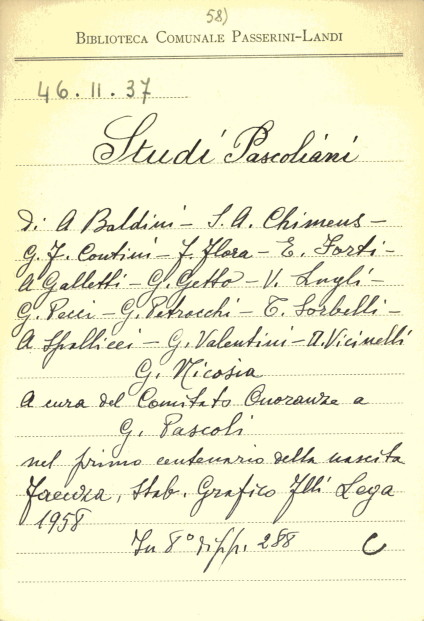 58)
BIBLIOTECA COMUNALE PASSERINI-LANDI
46.II.37
Studi Pascoliani
di A Baldini - S. A. Chimens -
G. F. Contini - F. Flora - E. Forti -
A Galletti - G. Getto - V. Lugli -
G. Pecci - G. Petrocchi - T. Sorbelli -
A Spallicci - G. Valentini - A. Vicinelli
G. Nicosia
A cura del Comitato Onoranze a
G. Pascoli
nel primo centenario della nascita
Faenza, Stab. Grafico Flli Lega
1958
In 8° di pp. 288 C